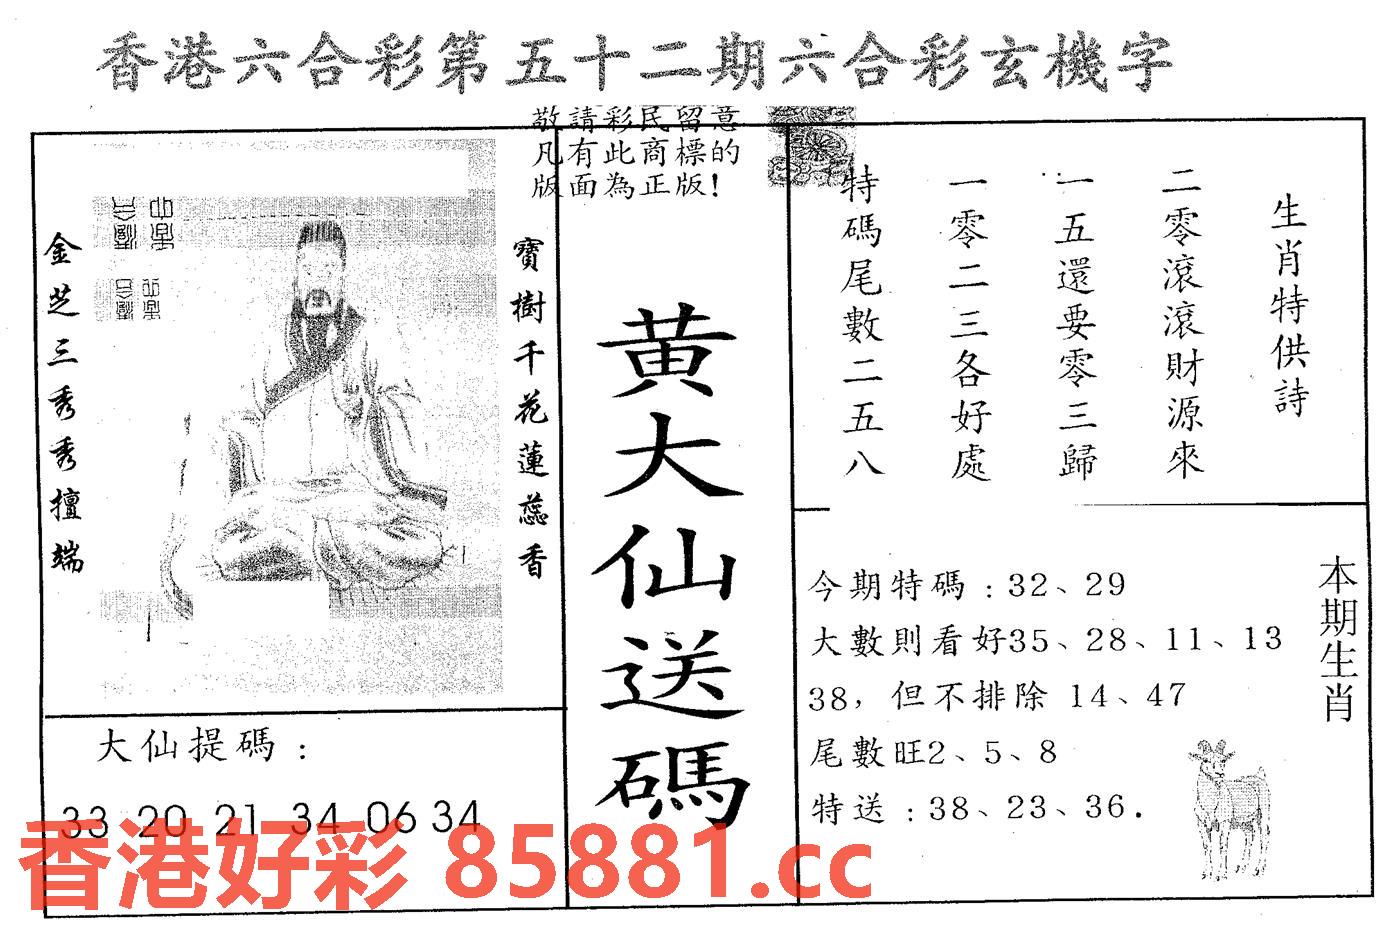 香港六合彩第五十二期六合彩玄機字
敬請彩民留意
凡有此商標的
版面為正版!
寶樹千花蓮蕊香
金芝三秀秀擅端
黄大仙送碼
生肖特供詩
二零滾滾財源來
一五還要零三歸
一零二三各好處
特碼尾數二五八
本期生肖
今期特碼：32、29
大數則看好35、28、11、13
38，但不排除 14、47
尾數旺2、5、8
特送：38、23、36.
大仙提碼：
33 20 21 34 06 34
香港好彩 85881.cc